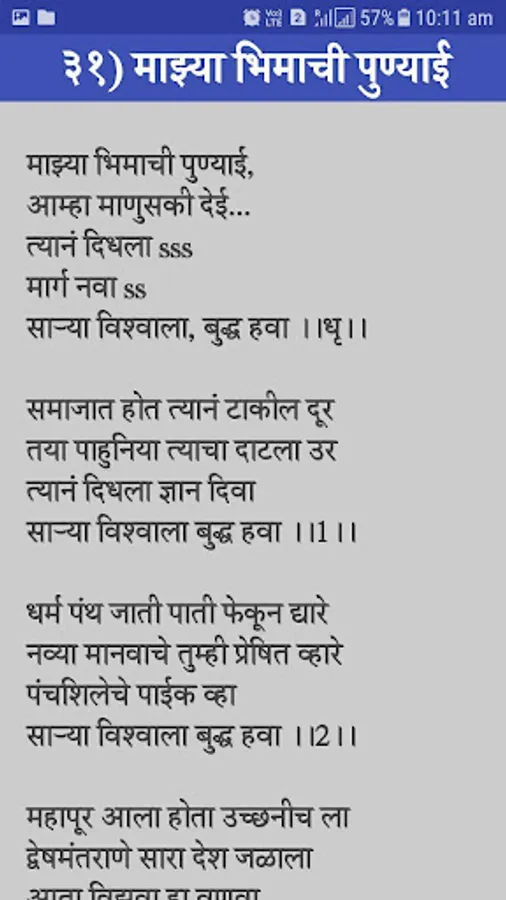 Vo) LTE 2 R 57% 10:11 am
३१) माझ्या भिमाची पुण्याई
माझ्या भिमाची पुण्याई,
आम्हा माणुसकी देई...
त्यानं दिधला sss
मार्ग नवा ss
साऱ्या विश्वाला, बुद्ध हवा ।।धृ।।
समाजात होत त्यानं टाकील दूर
तया पाहुनिया त्याचा दाटला उर
त्यानं दिधला ज्ञान दिवा
साऱ्या विश्वाला बुद्ध हवा ।।1।।
धर्म पंथ जाती पाती फेकून द्यारे
नव्या मानवाचे तुम्ही प्रेषित व्हारे
पंचशिलेचे पाईक व्हा
साऱ्या विश्वाला बुद्ध हवा ।।2।।
महापूर आला होता उच्छनीच ला
द्वेषमंतराणे सारा देश जळाला
आता विझवा हा वणवा